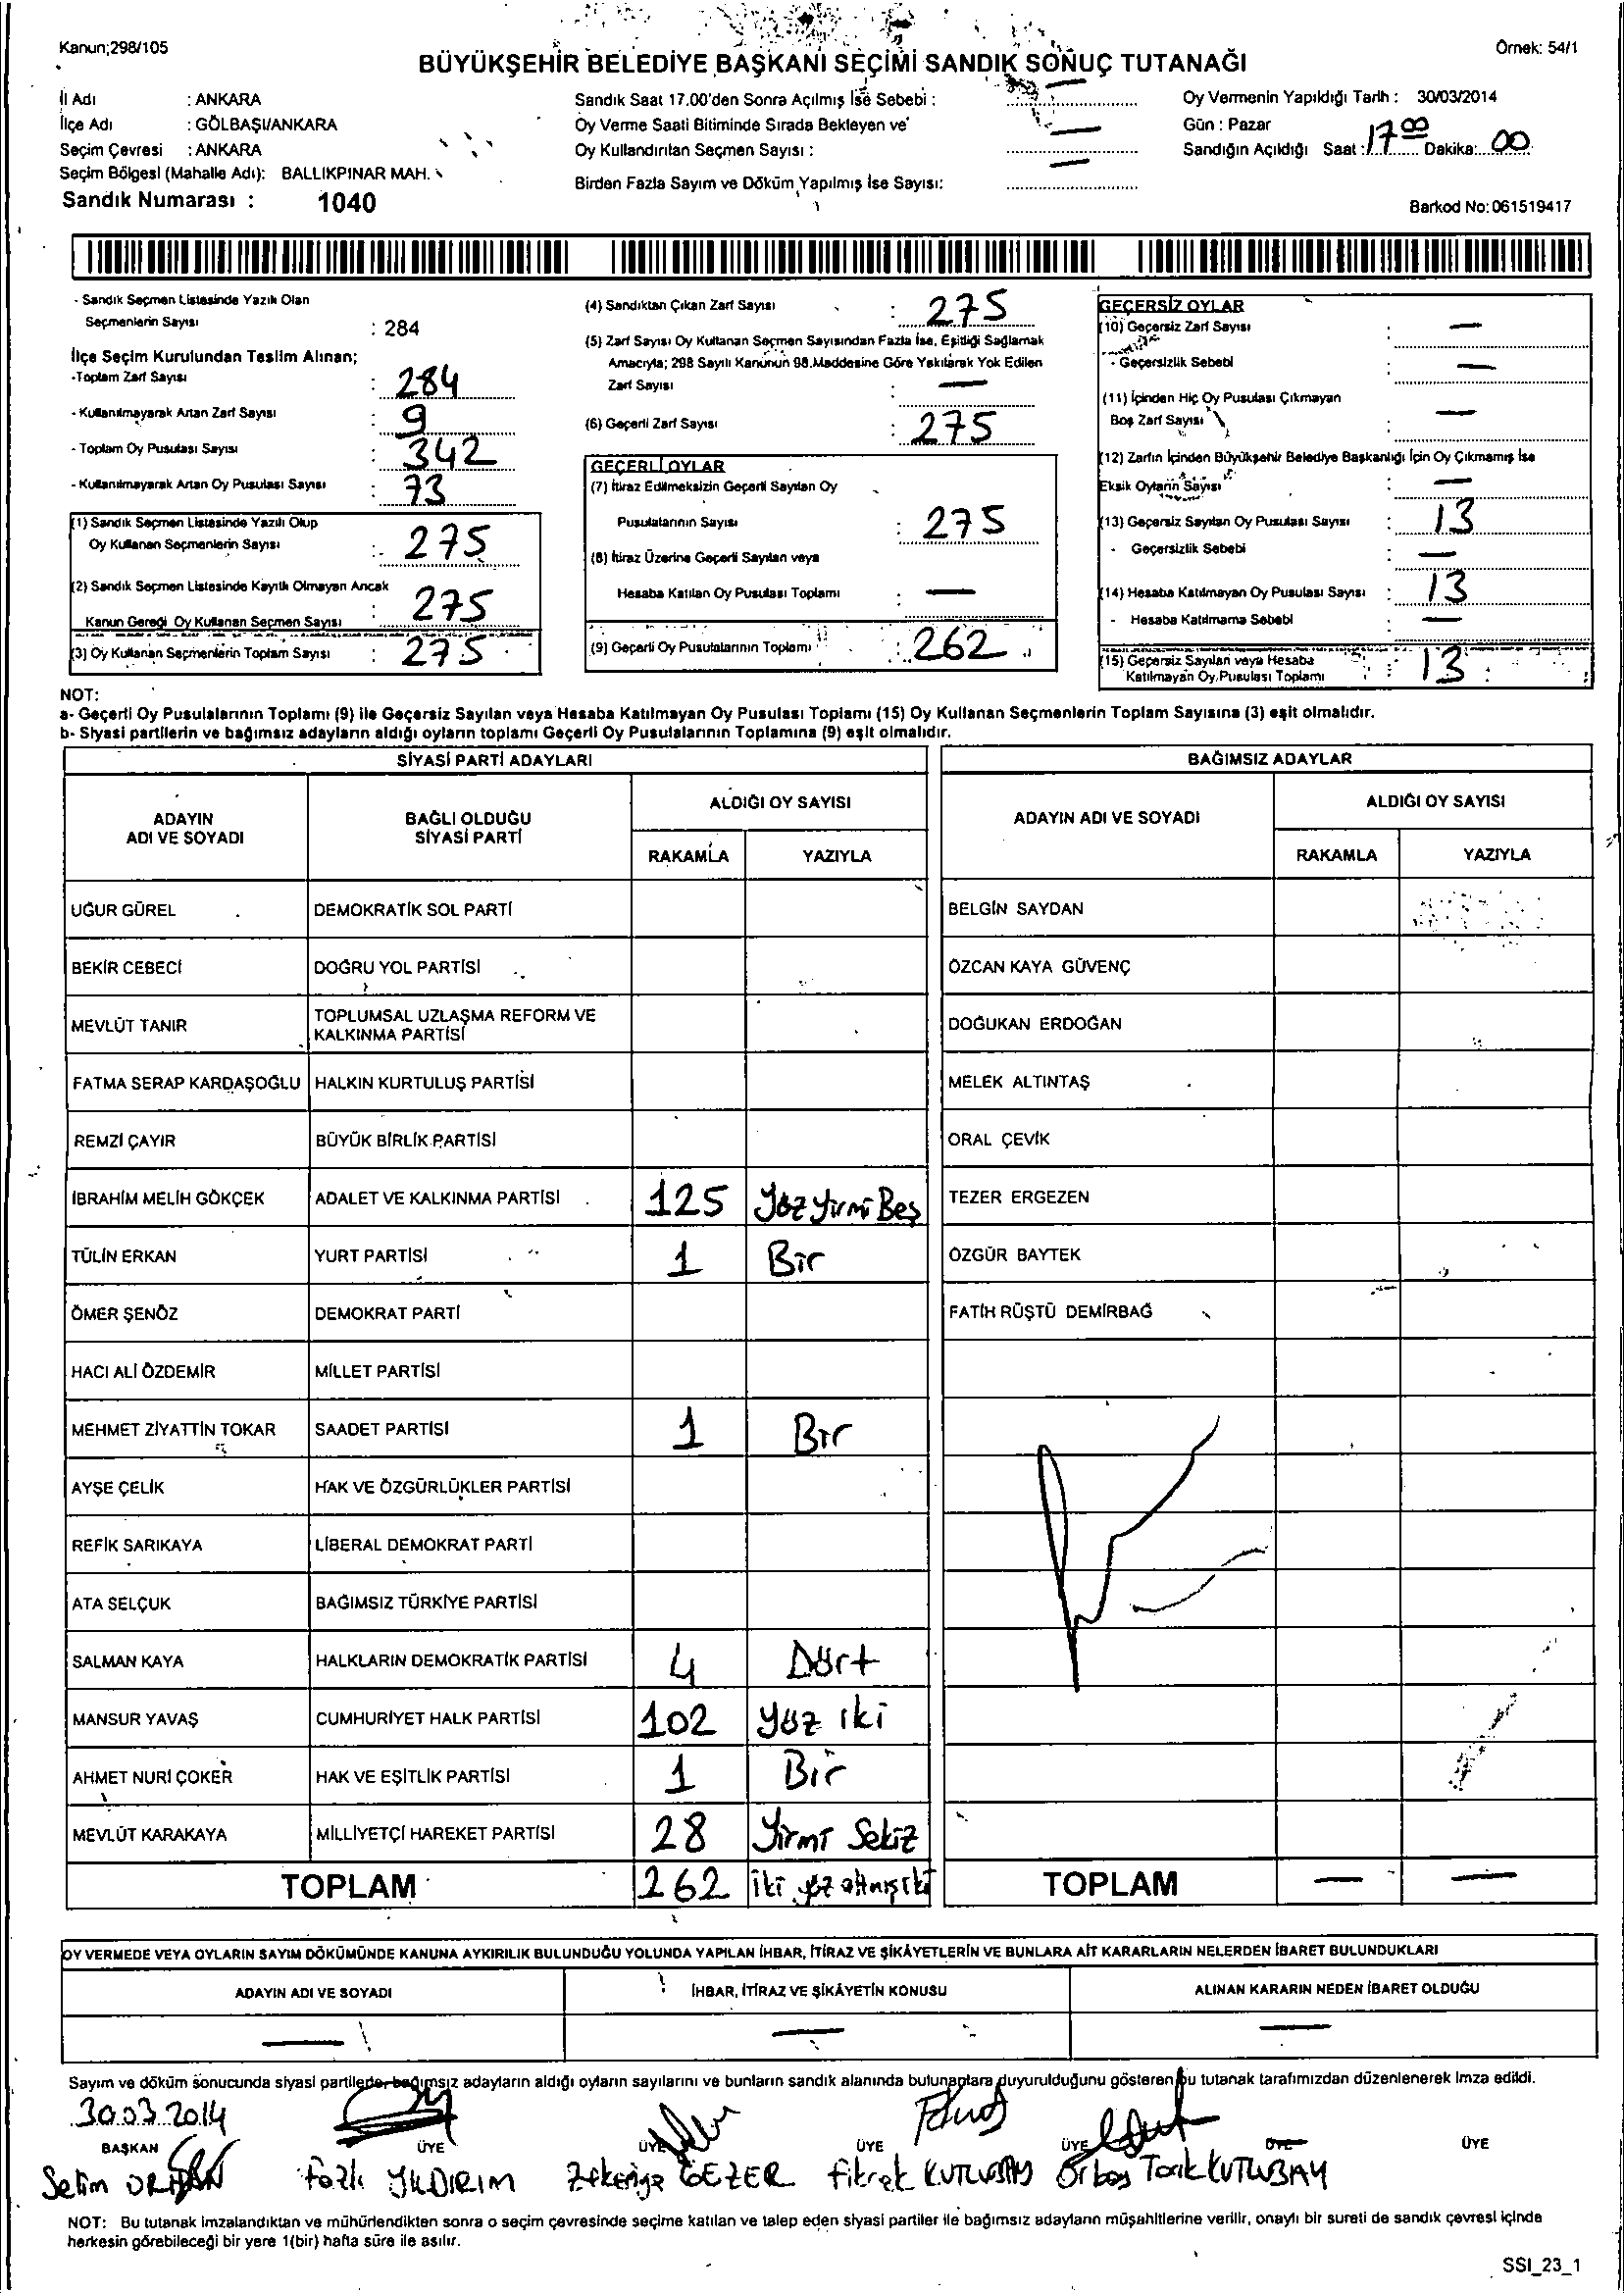 Kanun;298/105
Örnek: 54/1
BÜYÜKŞEHİR BELEDİYE BAŞKANI SEÇİMİ SANDIK SONUÇ TUTANAĞI
İl Adı : ANKARA
İlçe Adı : GÖLBAŞI/ANKARA
Seçim Çevresi : ANKARA
Seçim Bölgesi (Mahalle Adı): BALLIKPINAR MAH.
Sandık Numarası : 1040
Sandık Saat 17.00'den Sonra Açılmış İse Sebebi : —
Oy Verme Saati Bitiminde Sırada Bekleyen ve
Oy Kullandırılan Seçmen Sayısı : —
Birden Fazla Sayım ve Döküm Yapılmış İse Sayısı: —
Oy Vermenin Yapıldığı Tarih : 30/03/2014
Gün : Pazar
Sandığın Açıldığı Saat : 17 00 Dakika: 00
Barkod No: 061519417
- Sandık Seçmen Listesinde Yazılı Olan
Seçmenlerin Sayısı : 284
İlçe Seçim Kurulundan Teslim Alınan;
-Toplam Zarf Sayısı : 284
- Kullanılmayarak Artan Zarf Sayısı : 9
- Toplam Oy Pusulası Sayısı : 342
- Kullanılmayarak Artan Oy Pusulası Sayısı : 73
(1) Sandık Seçmen Listesinde Yazılı Olup
Oy Kullanan Seçmenlerin Sayısı : 275
(2) Sandık Seçmen Listesinde Kayıtlı Olmayan Ancak
Kanun Gereği Oy Kullanan Seçmen Sayısı : 275
(3) Oy Kullanan Seçmenlerin Toplam Sayısı : 275
(4) Sandıktan Çıkan Zarf Sayısı : 275
(5) Zarf Sayısı Oy Kullanan Seçmen Sayısından Fazla İse, Eşitliği Sağlamak
Amacıyla; 298 Sayılı Kanunun 98.Maddesine Göre Yakılarak Yok Edilen
Zarf Sayısı : —
(6) Geçerli Zarf Sayısı : 275
GEÇERLİ OYLAR
(7) İtiraz Edilmeksizin Geçerli Sayılan Oy
Pusulalarının Sayısı : 275
(8) İtiraz Üzerine Geçerli Sayılan veya
Hesaba Katılan Oy Pusulası Toplamı : —
(9) Geçerli Oy Pusulalarının Toplamı : 262
GEÇERSİZ OYLAR
(10) Geçersiz Zarf Sayısı : —
- Geçersizlik Sebebi : —
(11) İçinden Hiç Oy Pusulası Çıkmayan
Boş Zarf Sayısı : —
(12) Zarfın İçinden Büyükşehir Belediye Başkanlığı İçin Oy Çıkmamış İse
Eksik Oyların Sayısı : —
(13) Geçersiz Sayılan Oy Pusulası Sayısı : 13
- Geçersizlik Sebebi : —
(14) Hesaba Katılmayan Oy Pusulası Sayısı : 13
- Hesaba Katılmama Sebebi : —
(15) Geçersiz Sayılan veya Hesaba
Katılmayan Oy Pusulası Toplamı : 13
NOT:
a- Geçerli Oy Pusulalarının Toplamı (9) ile Geçersiz Sayılan veya Hesaba Katılmayan Oy Pusulası Toplamı (15) Oy Kullanan Seçmenlerin Toplam Sayısına (3) eşit olmalıdır.
b- Siyasi partilerin ve bağımsız adayların aldığı oyların toplamı Geçerli Oy Pusulalarının Toplamına (9) eşit olmalıdır.
SİYASİ PARTİ ADAYLARI
ADAYIN ADI VE SOYADI
BAĞLI OLDUĞU SİYASİ PARTİ
ALDIĞI OY SAYISI
RAKAMLA YAZIYLA
UĞUR GÜREL DEMOKRATİK SOL PARTİ
BEKİR CEBECİ DOĞRU YOL PARTİSİ
MEVLÜT TANIR TOPLUMSAL UZLAŞMA REFORM VE
KALKINMA PARTİSİ
FATMA SERAP KARDAŞOĞLU HALKIN KURTULUŞ PARTİSİ
REMZİ ÇAYIR BÜYÜK BİRLİK PARTİSİ
İBRAHİM MELİH GÖKÇEK ADALET VE KALKINMA PARTİSİ 125 Yüz Yirmi Beş
TÜLİN ERKAN YURT PARTİSİ 1 Bir
ÖMER ŞENÖZ DEMOKRAT PARTİ
HACI ALİ ÖZDEMİR MİLLET PARTİSİ
MEHMET ZİYATTİN TOKAR SAADET PARTİSİ 1 Bir
AYŞE ÇELİK HAK VE ÖZGÜRLÜKLER PARTİSİ
REFİK SARIKAYA LİBERAL DEMOKRAT PARTİ
ATA SELÇUK BAĞIMSIZ TÜRKİYE PARTİSİ
SALMAN KAYA HALKLARIN DEMOKRATİK PARTİSİ 4 Dört
MANSUR YAVAŞ CUMHURİYET HALK PARTİSİ 102 Yüz iki
AHMET NURİ ÇOKER HAK VE EŞİTLİK PARTİSİ 1 Bir
MEVLÜT KARAKAYA MİLLİYETÇİ HAREKET PARTİSİ 28 Yirmi Sekiz
TOPLAM 262 iki yüz altmış iki
BAĞIMSIZ ADAYLAR
ADAYIN ADI VE SOYADI
ALDIĞI OY SAYISI
RAKAMLA YAZIYLA
BELGİN SAYDAN
ÖZCAN KAYA GÜVENÇ
DOĞUKAN ERDOĞAN
MELEK ALTINTAŞ
ORAL ÇEVİK
TEZER ERGEZEN
ÖZGÜR BAYTEK
FATİH RÜŞTÜ DEMİRBAĞ
TOPLAM — —
OY VERMEDE VEYA OYLARIN SAYIM DÖKÜMÜNDE KANUNA AYKIRILIK BULUNDUĞU YOLUNDA YAPILAN İHBAR, İTİRAZ VE ŞİKÂYETLERİN VE BUNLARA AİT KARARLARIN NELERDEN İBARET BULUNDUKLARI
ADAYIN ADI VE SOYADI İHBAR, İTİRAZ VE ŞİKÂYETİN KONUSU ALINAN KARARIN NEDEN İBARET OLDUĞU
— — —
Sayım ve döküm sonucunda siyasi partilerle, bağımsız adayların aldığı oyların sayılarını ve bunların sandık alanında bulunanlara duyurulduğunu gösteren bu tutanak tarafımızdan düzenlenerek imza edildi.
30.03.2014
BAŞKAN ÜYE ÜYE ÜYE ÜYE ÜYE ÜYE
Selim Fazlı YILDIRIM Zekeriya GEZER Fikret KUTLUBAY Tarık KUTLUBAY
NOT: Bu tutanak imzalandıktan ve mühürlendikten sonra o seçim çevresinde seçime katılan ve talep eden siyasi partiler ile bağımsız adayların müşahitlerine verilir, onaylı bir sureti de sandık çevresi içinde
herkesin görebileceği bir yere 1(bir) hafta süre ile asılır.
SSI_23_1